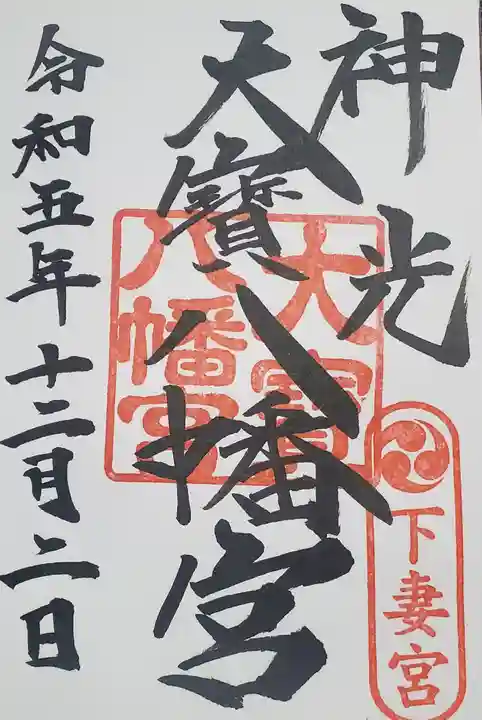 神光
天寶八幡宮
令和五年十二月二日
大寶
八幡宮
下妻宮